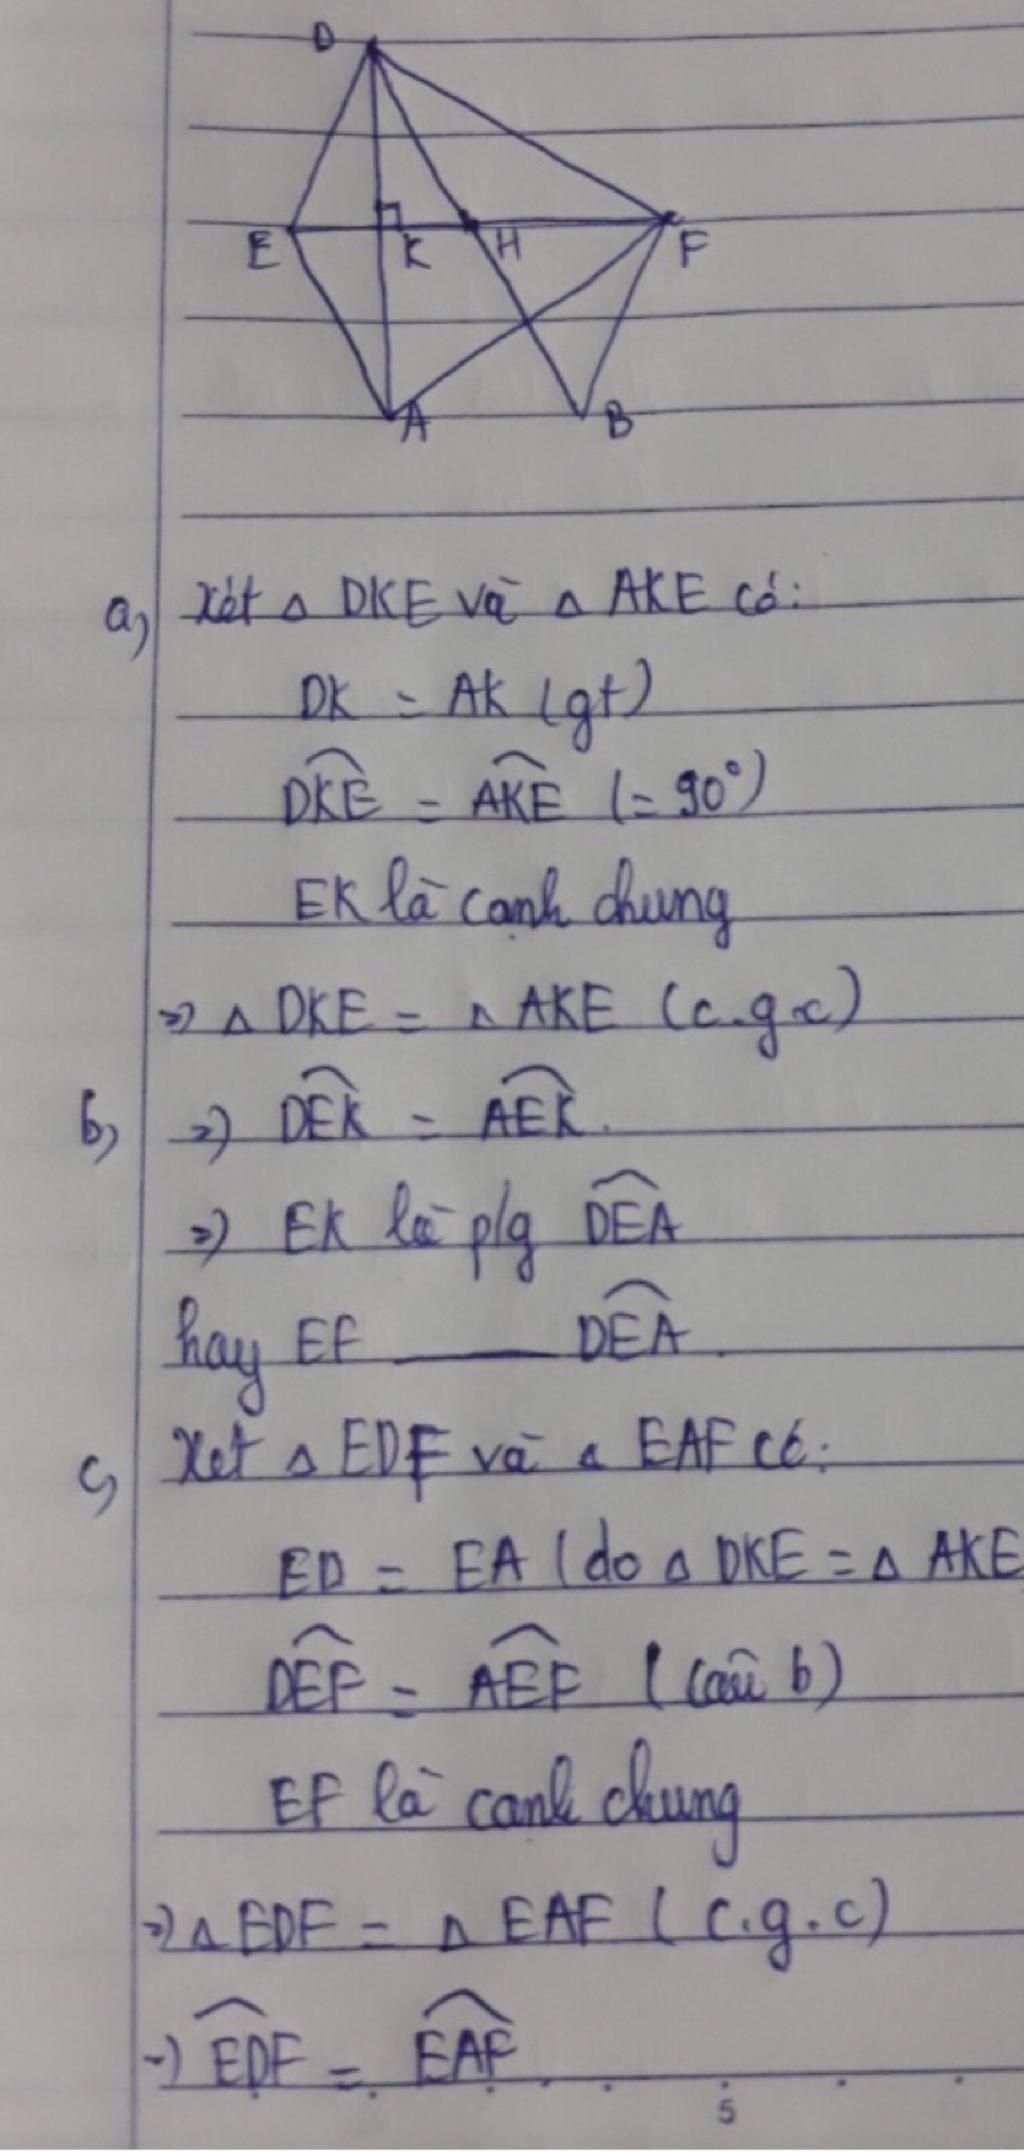 D
E K H F
A B
a, Xét Δ DKE và Δ AKE có:
DK = AK (gt)
DKE = AKE (= 90°)
EK là cạnh chung
=> Δ DKE = Δ AKE (c.g.c)
b, => DEK = AEK.
=> EK là p/g DEA
hay EF —— DEA.
c, Xet Δ EDF và Δ EAF có:
ED = EA (do Δ DKE = Δ AKE
DEF = AEF (câu b)
EF là canh chung
=> Δ EDF = Δ EAF (c.g.c)
=> EDF = EAF
5